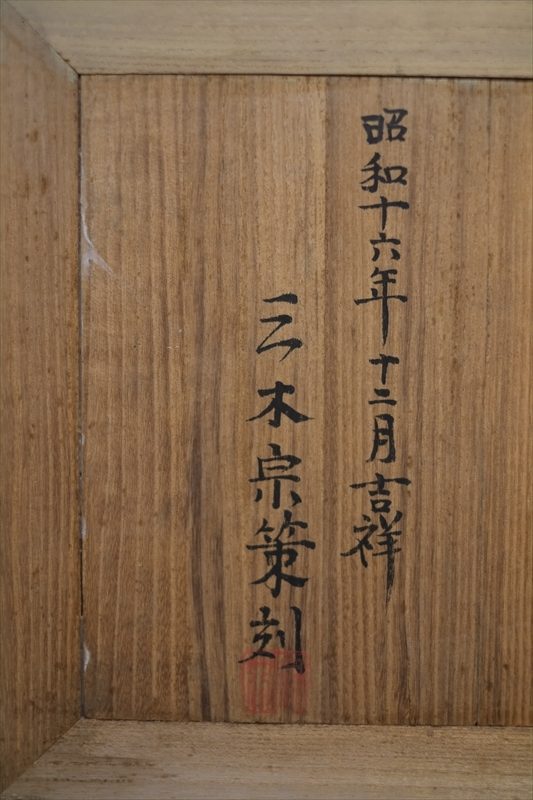 昭和十六年十二月吉祥
三木宗策刻